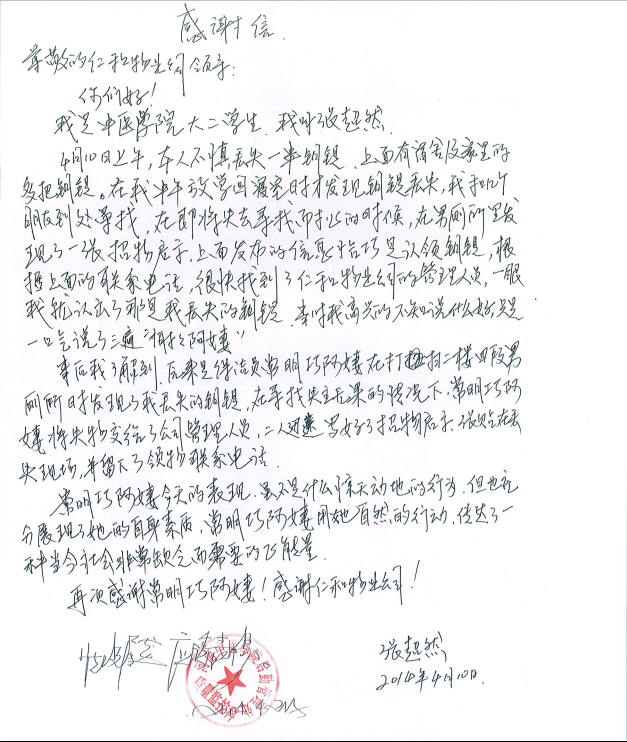 感谢信
尊敬的仁和物业公司领导：
你们好！
我是中医学院大二学生，我叫张超然。
4月10日上午，本人不慎丢失一串钥匙，上面有宿舍及家里的
多把钥匙。在我中午放学回寝室时才发现钥匙丢失，我和几个
朋友到处寻找，在即将失去寻找而找的时候，在男厕所里发
现了一张招物启示，上面发布的信息恰巧是认领钥匙，根
据上面的联系电话，很快找到了仁和物业公司的管理人员，一眼
我就认出了那是我丢失的钥匙，本时我高兴的不知说什么好，只是
一口气说了三遍“谢谢阿姨”
事后我了解到，后来是保洁员常明巧阿姨在打扫二楼四段男
厕所时发现了我丢失的钥匙，在寻找失主无果的情况下，常明巧阿
姨将失物交给了公司管理人员，二人写好了招物启示，张贴在丢
失现场，并留下了领物联系电话。
常明巧阿姨今天的表现，虽不是什么惊天动地的行为，但也充
分展现了她的自身素质，常明巧阿姨用她自然的行动，传达了一
种当今社会非常缺乏而需要的正能量。
再次感谢常明巧阿姨！感谢仁和物业公司！
张超然
2014年4月10日.